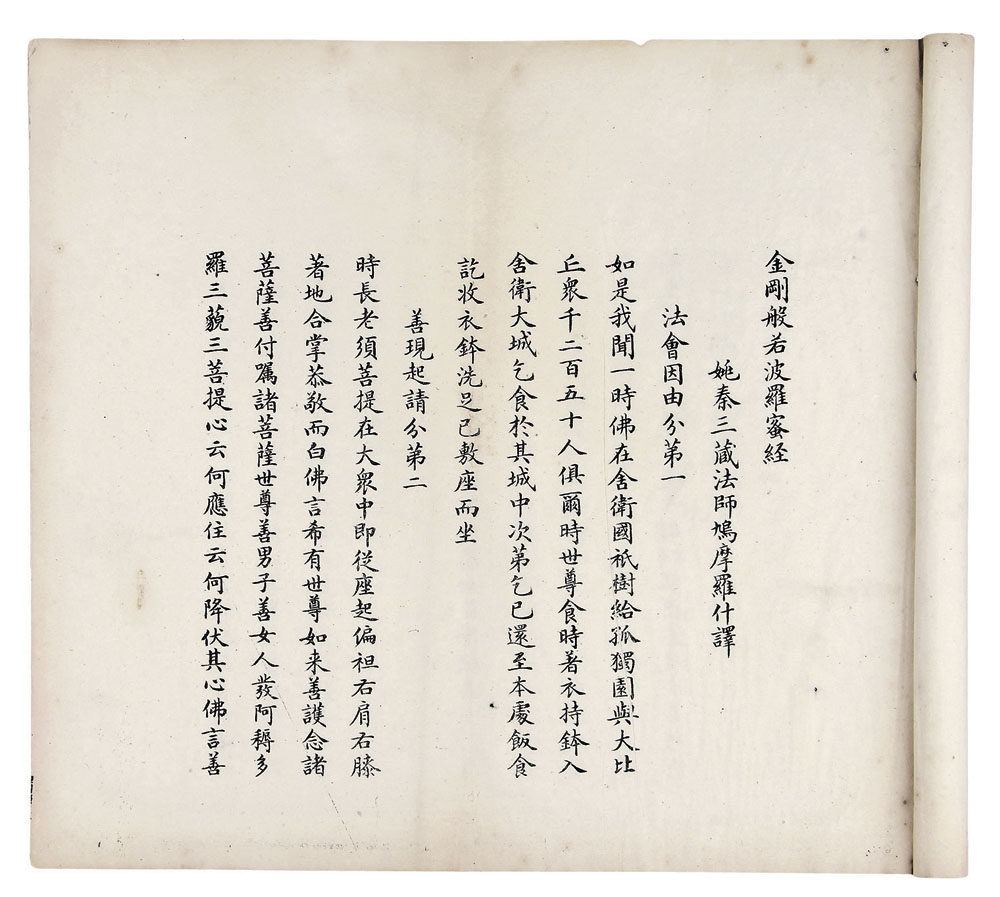 金剛般若波羅蜜経
姚秦三藏法師鳩摩羅什譯
法會因由分第一
如是我聞一時佛在舍衛國祇樹給孤獨園與大比
丘衆千二百五十人俱爾時世尊食時著衣持鉢入
舍衛大城乞食於其城中次第乞已還至本處飯食
訖收衣鉢洗足已敷座而坐
善現起請分第二
時長老須菩提在大衆中即從座起偏袒右肩右膝
著地合掌恭敬而白佛言希有世尊如来善護念諸
菩薩善付囑諸菩薩世尊善男子善女人發阿耨多
羅三藐三菩提心云何應住云何降伏其心佛言善